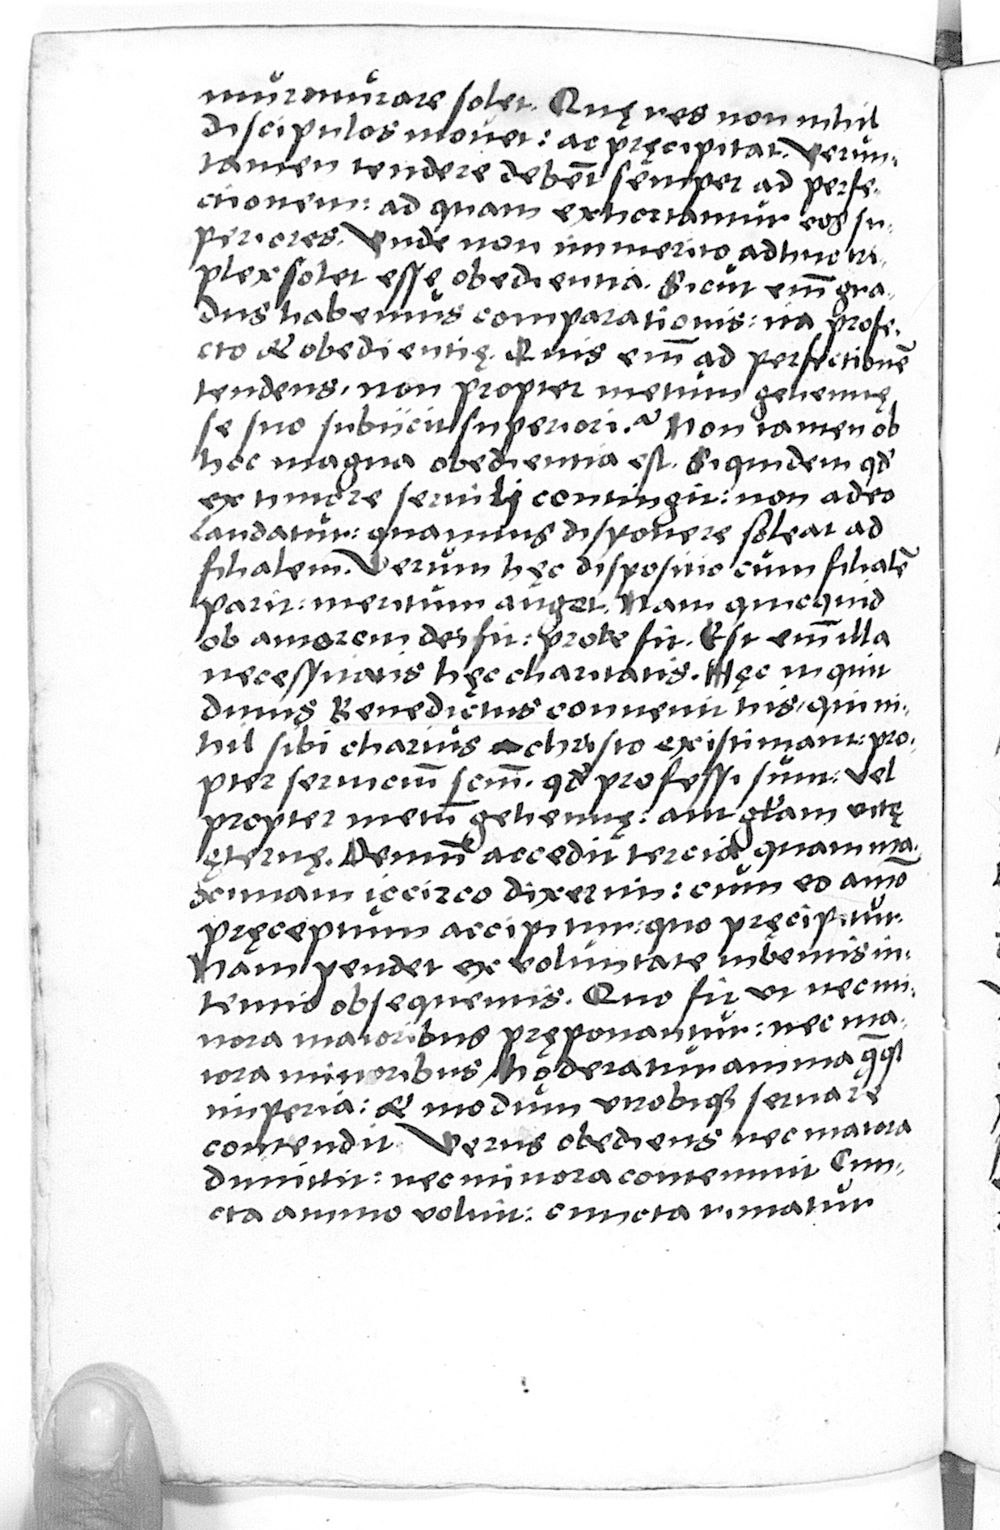 murmurare solet. Quę res non nihil
discipulos mouet: ac pręcipitat. Verun-
tamen tendere debēt semper ad perfe-
ctionem: ad quam exhortantur eos su-
periores. Vnde non immerito adhuc tri-
plex solet essę obedientia. Sicut em̄ gra-
dus habemus comparationis: ita profe-
cto & obedientię. Quis em̄ ad perfectionē
tendens, non propter metum gehennę
se suo subijcit superiori? Non tamen ob
hoc magna obedientia est. Siquidem qđ
ex timore seruili contingit: non adeo
Laudatur: quamuis disponere soleat ad
filialem. Verum hęc dispositio cum filialē
parit: meritum auget. Nam quicquid
ob amorem dei fit: probe fit. Est em̄ illa
necessitatis hęc charitatis. Hęc inquit
diuus Benedictus conuenit his, qui ni-
hil sibi charius a christo existimant: pro-
pter seruiciū scm̄. qđ professi sunt: vel
propter metū gehennę: aut gl̄am vitę
ęternę. Demū accedit tercia quam ma-
ximam iccirco dixerim: cum eo amō
pręceptum accipitur: quo pręcipitur.
Nam pendet ex voluntate iubentis in-
tentio obsequentis. Quo fit vt nec mi-
nora maioribus pręponantur: nec ma-
iora minoribus Moderatur anima
imperia: & modum vtrobiq; seruare
contendit. Verus obediens nec maiora
dimittit: nec minora contemnit Cun-
cta animo voluit: cuncta rimatur